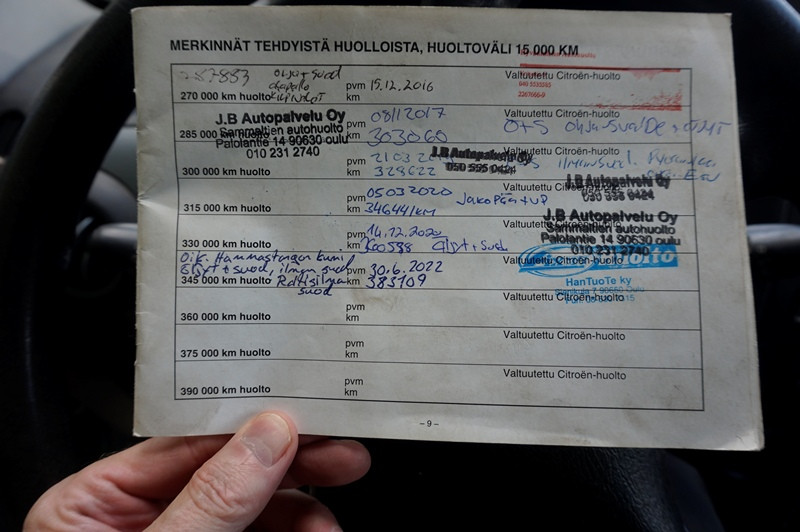 MERKINNÄT TEHDYISTÄ HUOLLOISTA, HUOLTOVÄLI 15 000 KM
287883 öljyt+suod
270 000 km huolto
pvm 15.12.2016
km
Valtuutettu Citroën-huolto
040 5535283
2267066-9
J.B Autopalvelu Oy
Sammaltien autohuolto
Palolantie 14 90630 oulu
010 231 2740
285 000 km huolto
pvm 08/1 2017
km 303060
Valtuutettu Citroën-huolto
Ö+S
300 000 km huolto
pvm 21 03
km 328622
Valtuutettu Citroën-huolto
J.B Autopalvelu Oy
050 555 0424
ilmansuod.
315 000 km huolto
pvm 05032020
km 346441km
Jakopää + VP
Valtuutettu Citroën-huolto
J.B Autopalvelu Oy
330 000 km huolto
pvm 14.12.2020
km
Öljyt + Suod
Valtuutettu Citroën-huolto
J.B Autopalvelu Oy
Sammaltien autohuolto
Palolantie 14 90630 oulu
010 231 2740
Oik. Hammastangon kumi
Öljyt + suod, ilman suod
Raitisilman
suod
345 000 km huolto
pvm 30.6.2022
km 383109
Valtuutettu Citroën-huolto
HanTuoTe ky
360 000 km huolto
pvm
km
Valtuutettu Citroën-huolto
375 000 km huolto
pvm
km
Valtuutettu Citroën-huolto
390 000 km huolto
pvm
km
Valtuutettu Citroën-huolto
- 9 -